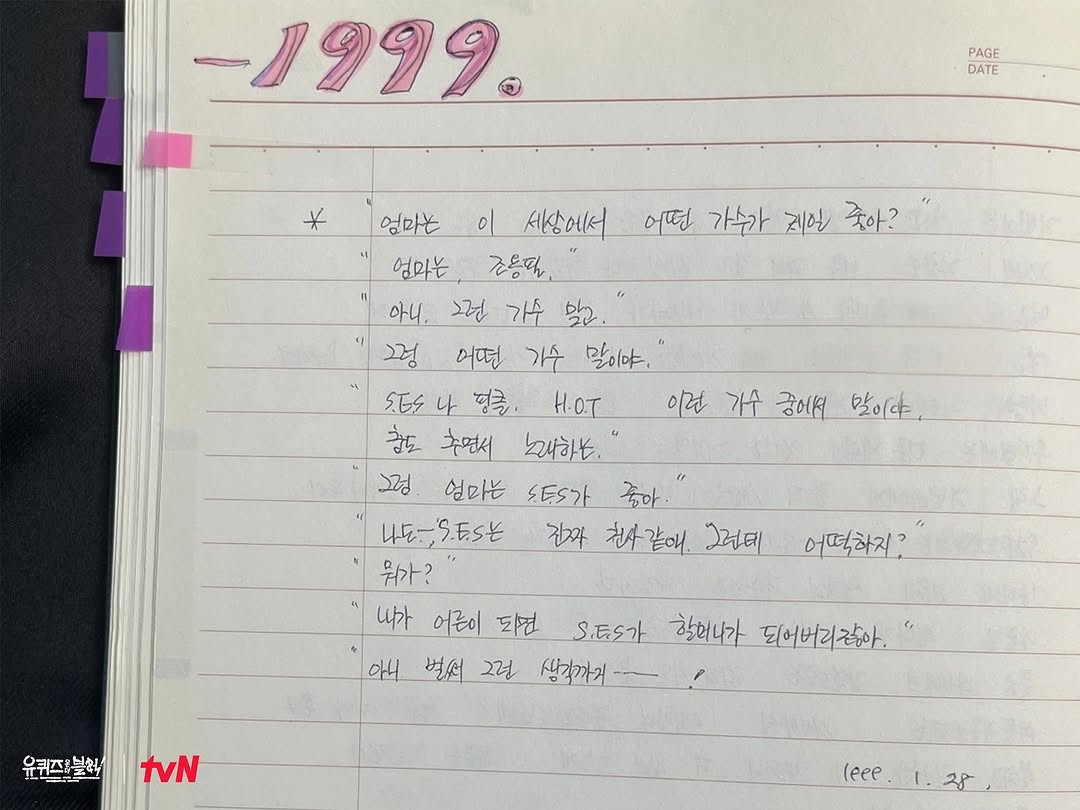 -1999.
PAGE
DATE
* "엄마는 이 세상에서 어떤 가수가 제일 좋아?"
"엄마는, 조용필."
"아니. 그런 가수 말고."
"그럼 어떤 가수 말이야."
"S.E.S 나 핑클. H.O.T 이런 가수 중에서 말이야.
춤도 추면서 노래하는."
"그럼. 엄마는 S.E.S가 좋아."
"나도-, S.E.S는 진짜 천사같애. 그런데 어떡하지?"
"뭐가?"
"내가 어른이 되면 S.E.S가 할머니가 되어버리잖아."
"아니 벌써 그런 생각까지 — !
1999. 1. 28.
유퀴즈온더블럭 tvN